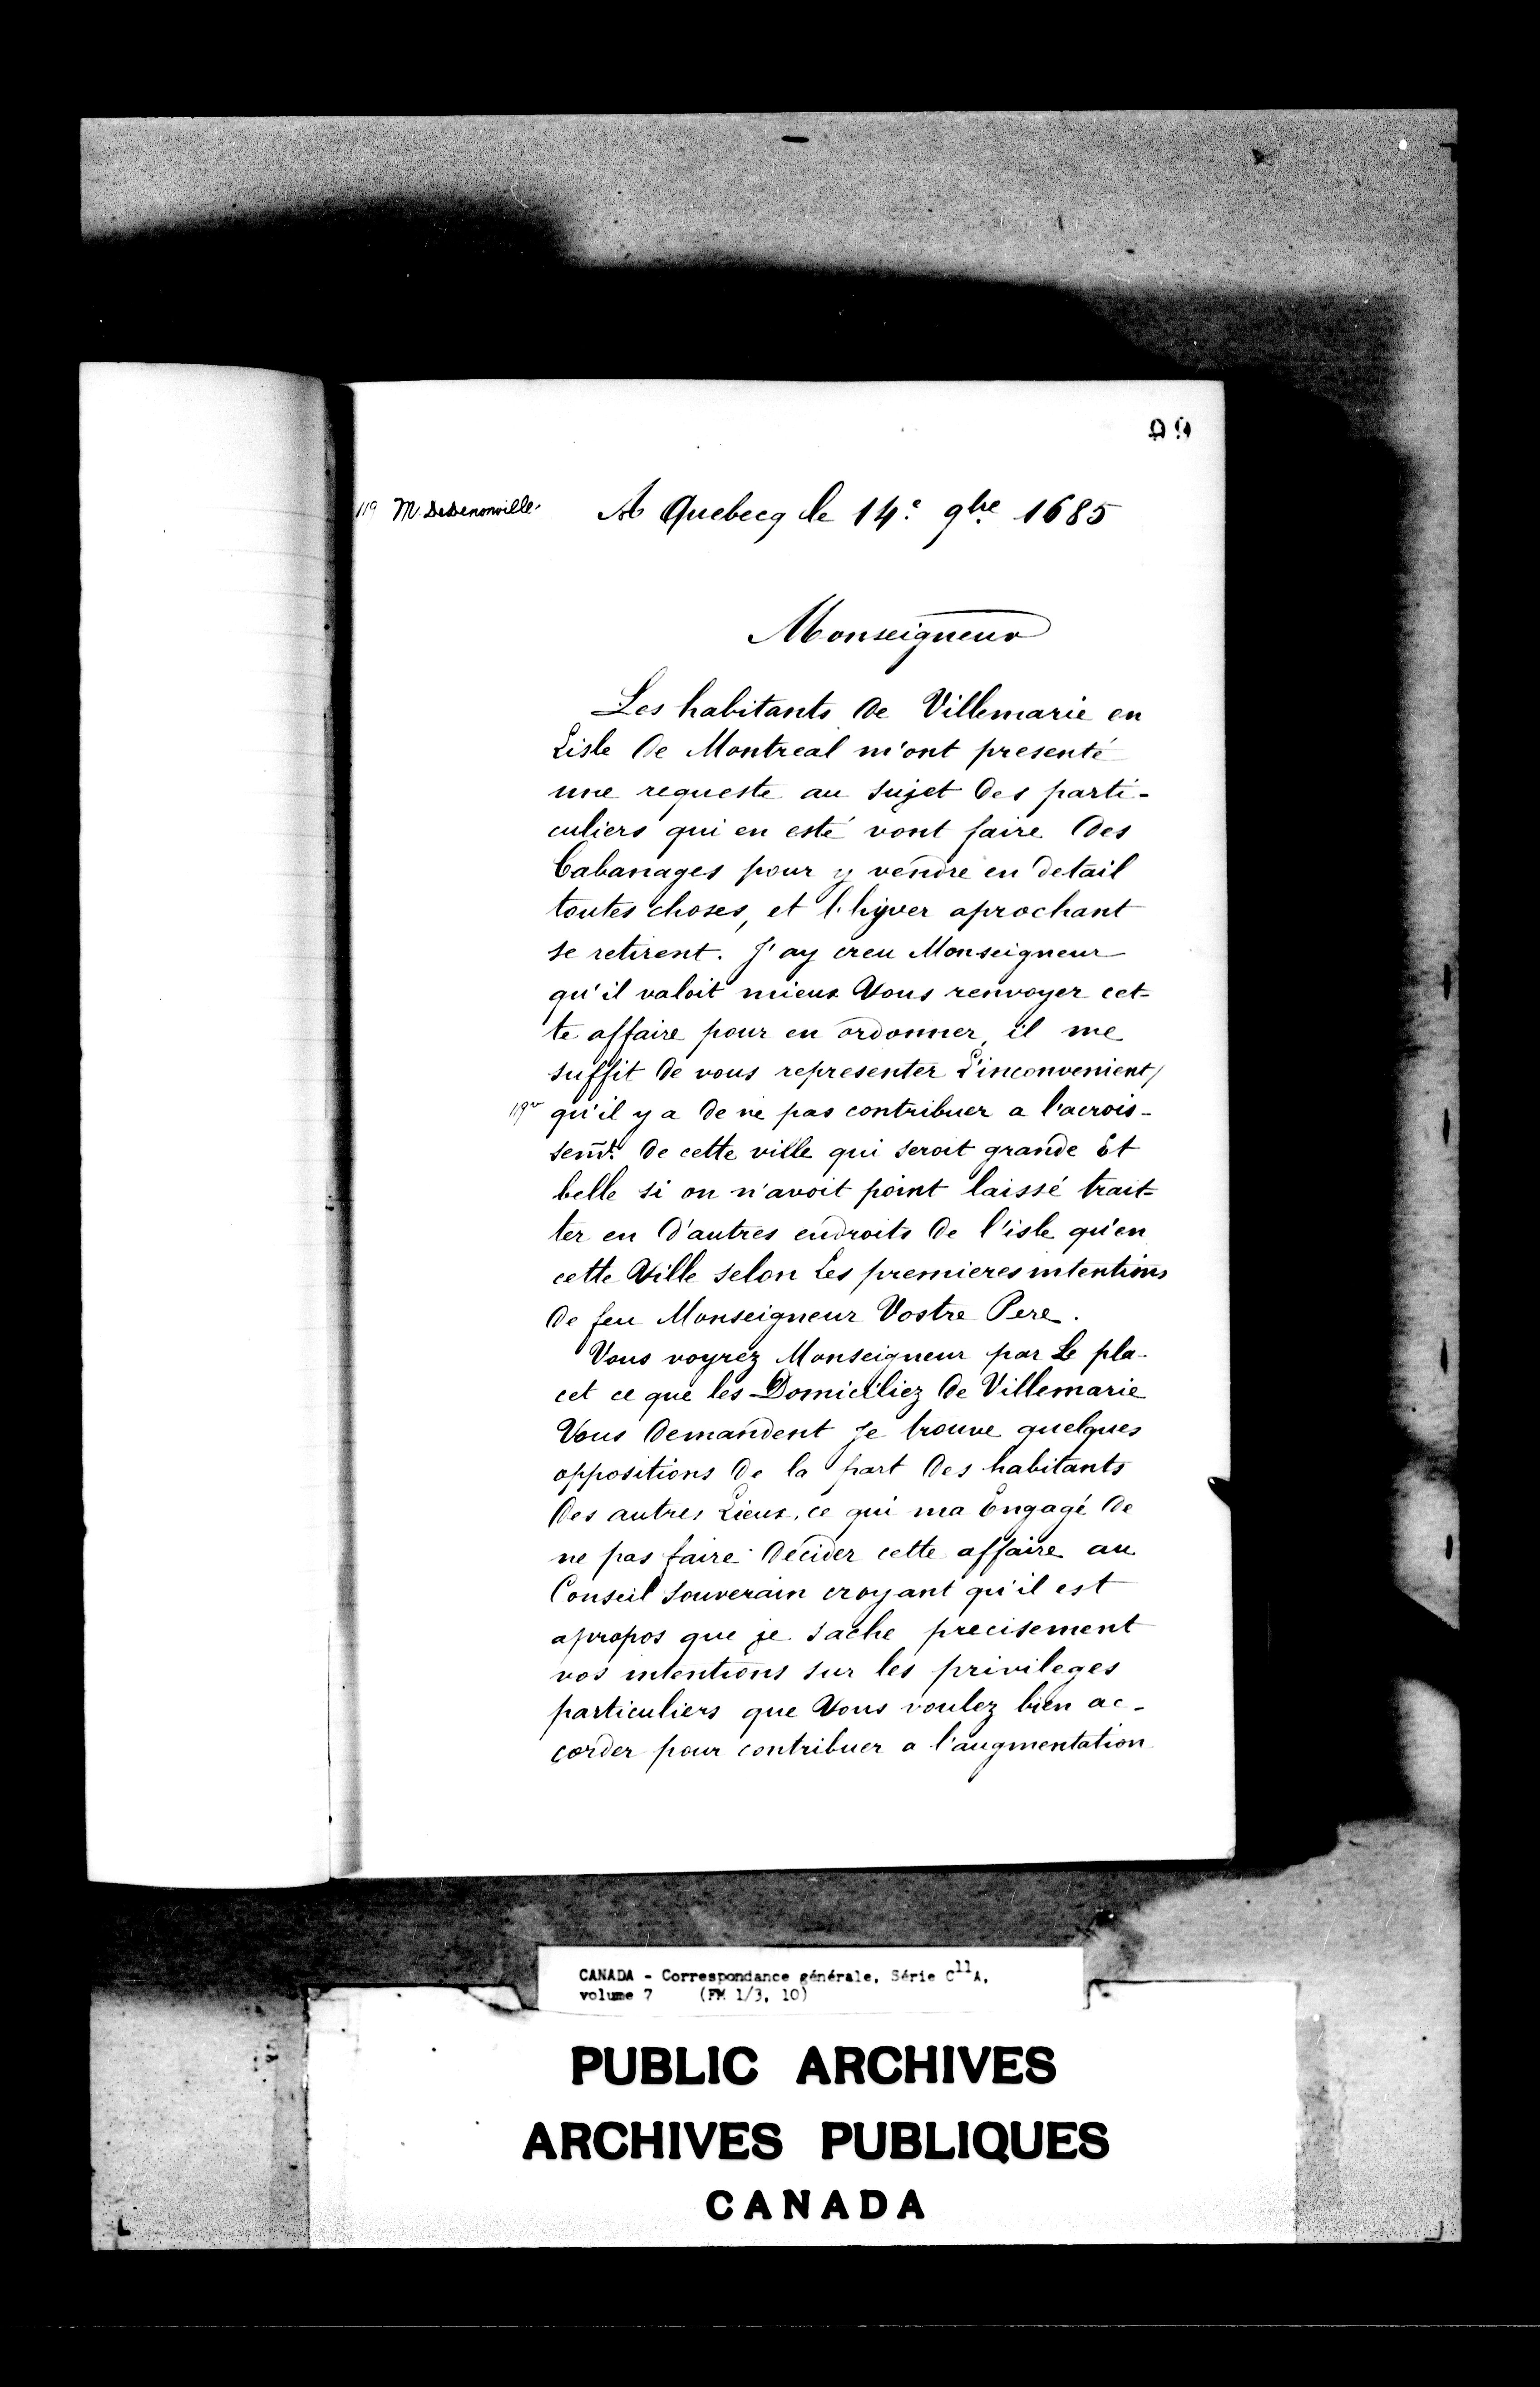 99
119 M. DeDenonville.
A Quebecq le 14.e 9bre 1685
Monseigneur
Les habitants de Villemarie en
L'isle de Montreal m'ont presenté
une requeste au sujet des parti-
culiers qui en esté vont faire des
Cabanages pour y vendre en detail
toutes choses, et l'hyver aprochant
se retirent. J'ay creu Monseigneur
qu'il valoit mieux Vous renvoyer cet-
te affaire pour en ordonner, il me
suffit de vous representer L'inconvenient/
119v qu'il y a de ne pas contribuer a l'acrois-
semt. de cette ville qui seroit grande Et
belle si on n'avoit point laissé trait-
ter en d'autres endroits de l'isle qu'en
cette Ville selon Les premieres intentions
de feu Monseigneur Vostre Pere.
Vous voyrez Monseigneur par Le pla-
cet ce que les Domiciliez de Villemarie
Vous demandent Je trouve quelques
oppositions de la part des habitants
des autres Lieux, ce qui ma Engagé de
ne pas faire decider cette affaire au
Conseil Souverain croyant qu'il est
apropos que je sache precisement
vos intentions sur les privileges
particuliers que Vous voulez bien ac-
corder pour contribuer a l'augmentation
CANADA - Correspondance générale, Série C11A,
volume 7 (FM 1/3, 10)
PUBLIC ARCHIVES
ARCHIVES PUBLIQUES
CANADA